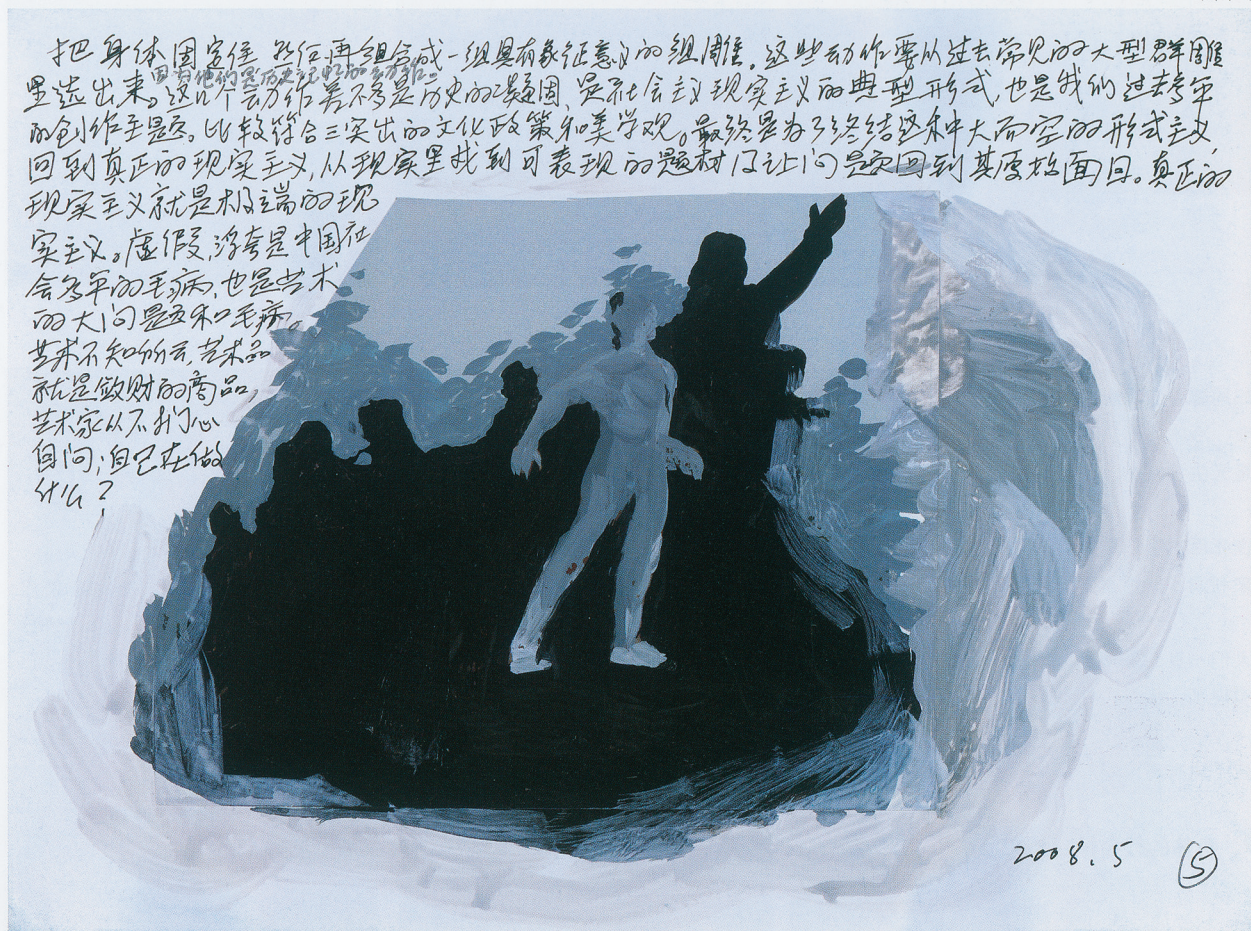 把身体固定住 然后再组合成一组具有象征意义的组雕。这些动作要从过去常见的大型群雕
因为他们是历史记忆的动作。
里选出来。这几个动作差不多是历史的凝固,是社会主义现实主义的典型形式,也是我们过去多年
的创作主题。比较符合三突出的文化政策和美学观。最终是为了终结这种大而空的形式主义,
回到真正的现实主义,从现实里找到可表现的题材及让问题回到其原始面目。真正的
现实主义就是极端的现
实主义。虚假,浮夸是中国社
会多年的毛病,也是艺术
的大问题和毛病。
艺术不知所云,艺术品
就是敛财的商品,
艺术家从不扪心
自问;自己在做
什么?
2008.5
⑤